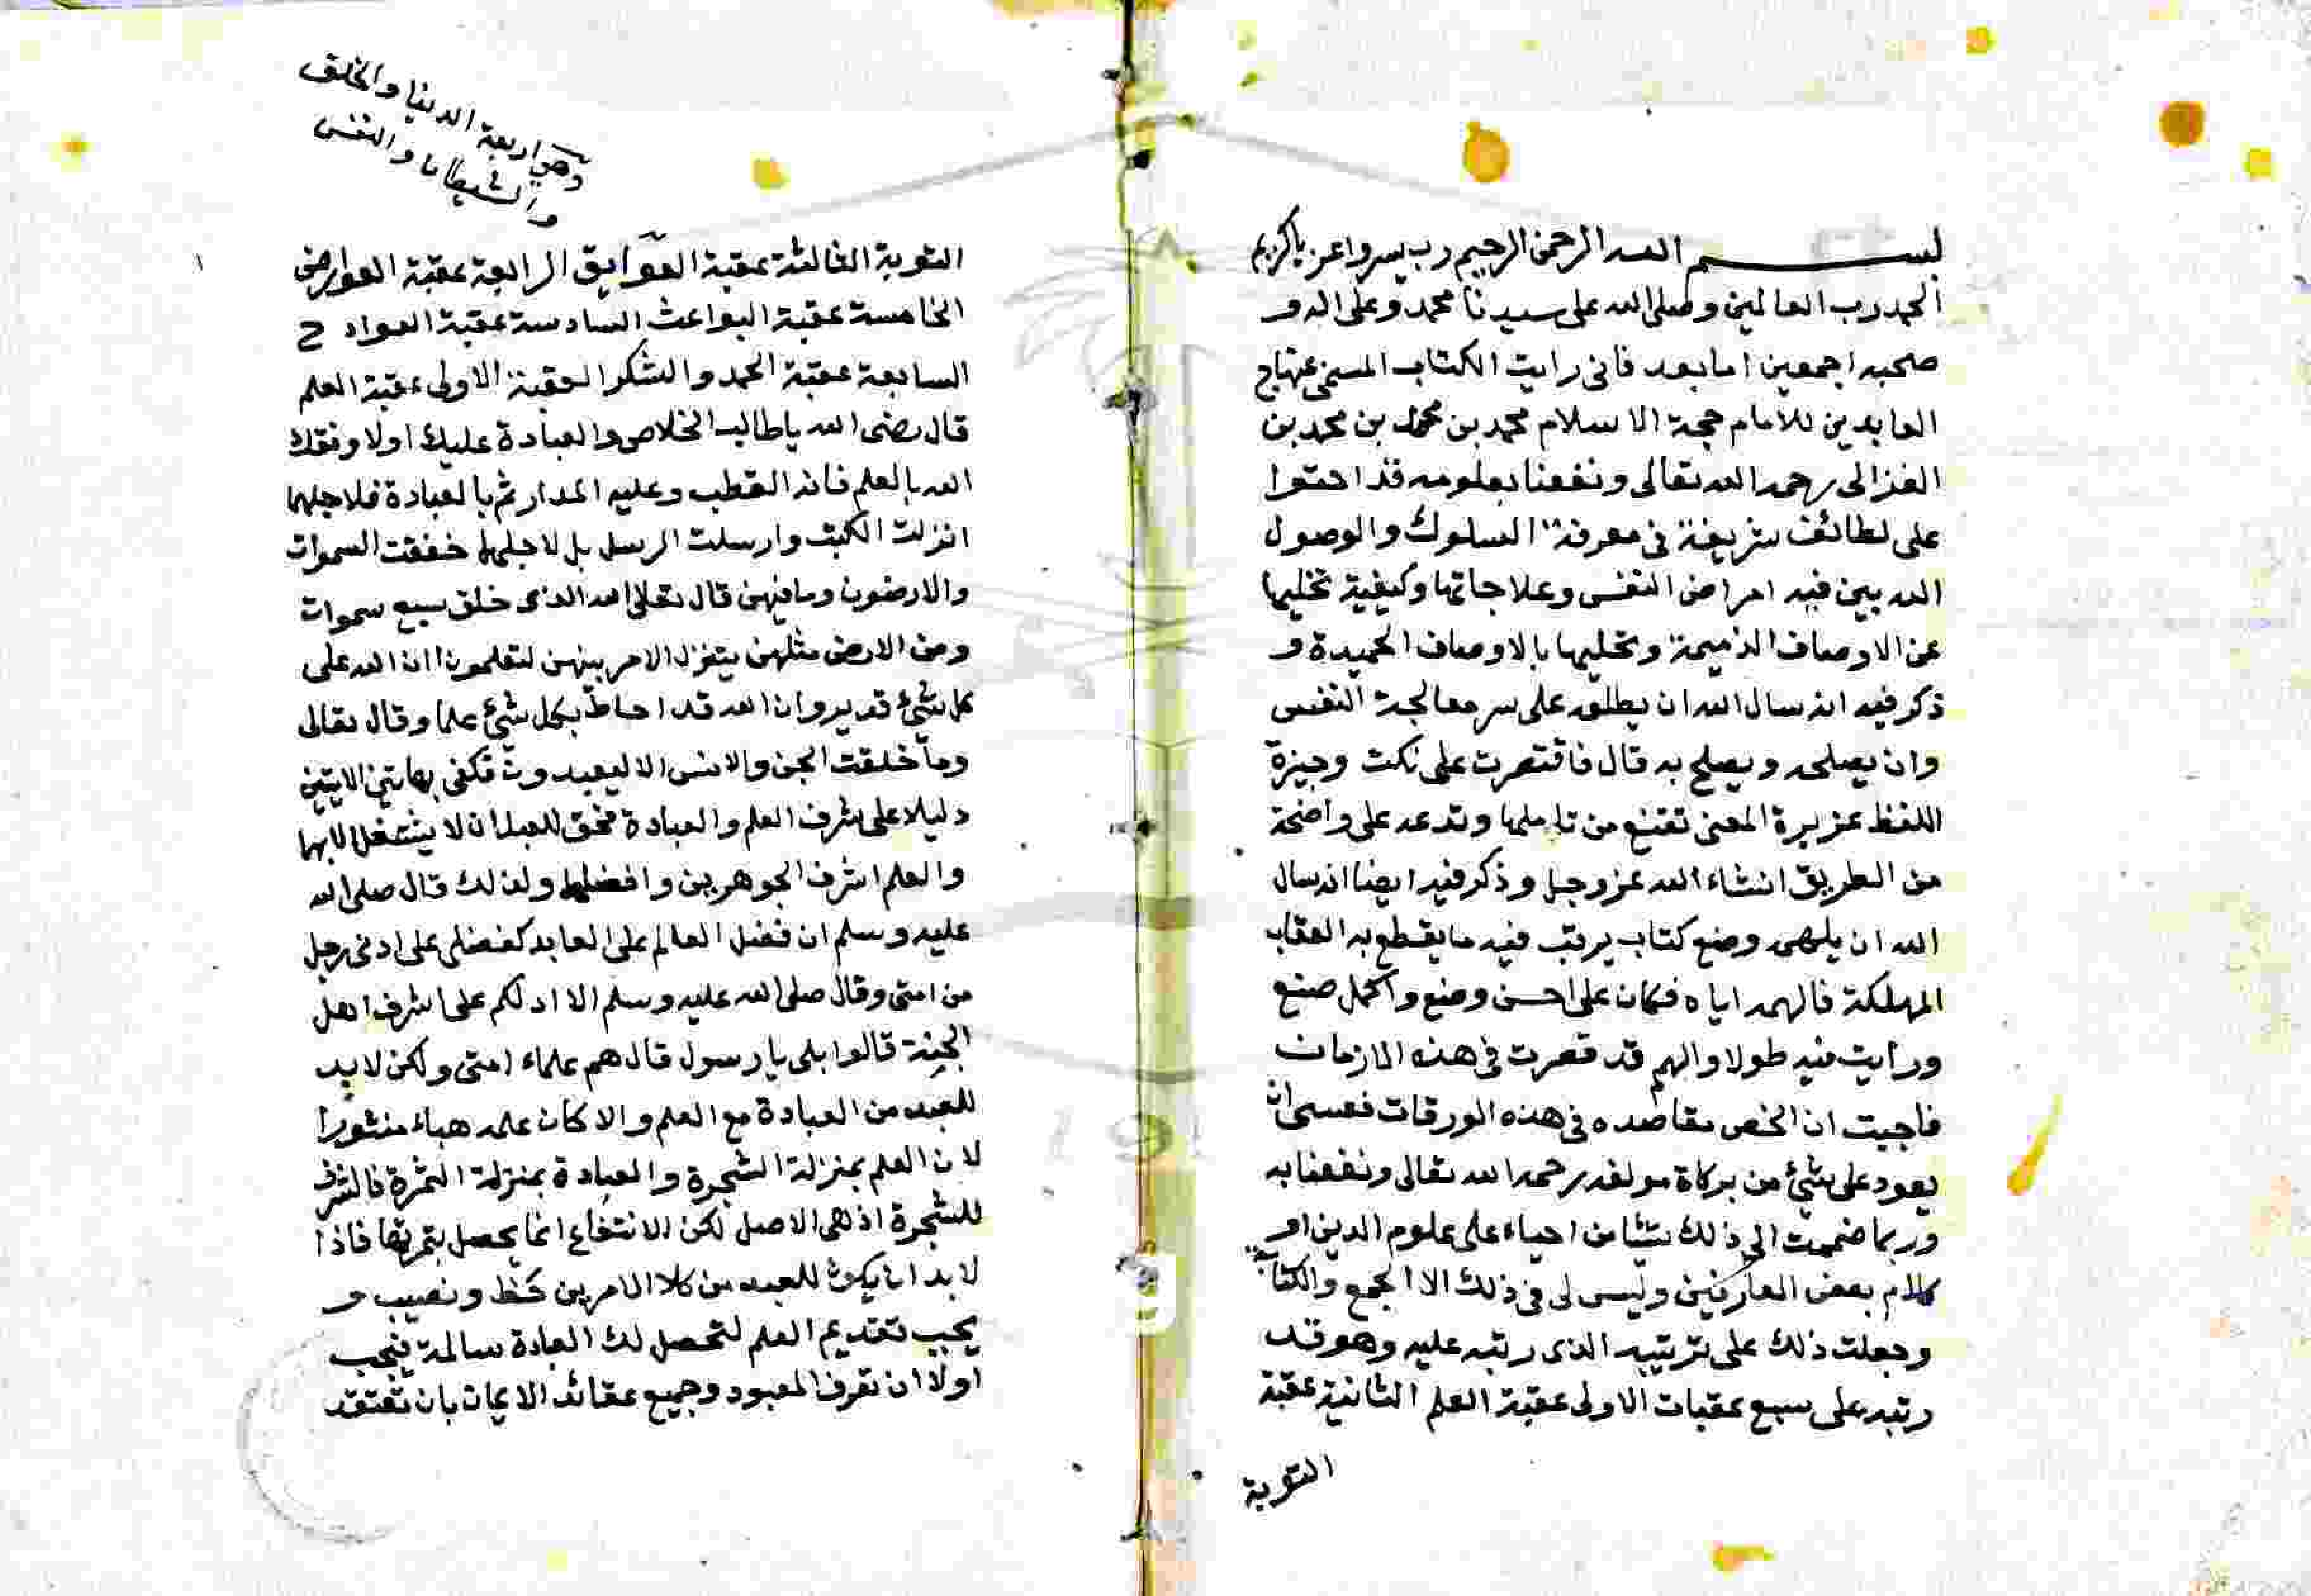 بسم الله الرحمن الرحيم رب يسر واعن ياكريم
الحمد رب العالمين وصلى الله على سيدنا محمد وعلى اله و
صحبه اجمعين اما بعد فانى رايت الكتاب المسمى بمنهاج
العابدين للامام حجة الاسلام محمد بن محمد بن محمد بن
الغزالى رحمه الله تعالى ونفعنا بعلومه قد احتوا
على لطائف شريفة فى معرفة السلوك والوصول
الله بين فيه امراض النفس وعلاجاتها وكيفية تخليها
عن الاوصاف الذميمة وتحليها بالاوصاف الحميدة و
ذكر فيه انه سال الله ان يطلعه على سر معالجة النفس
وان يصلحه ويصلح به قال فاقتصرت على نكت وجيزة
اللفظ عزيرة المعنى تقنع من تاملها وتدعه على واضحة
من الطريق انشاء الله عز وجل وذكر فيه ايضا انه سال
الله ان يلهمه وضع كتاب يرتب فيه ما يقطع به العقاب
المهلكة فالهمه اياه فكان على احسن وضع واكمل صنع
ورايت فيه طولا والهم قد قصرت فى هذه الازمان
فاجبت ان الخص مقاصده فى هذه الورقات فعسى ان
يعود على شئ من بركاة مولفه رحمه الله تعالى ونفعنا به
وربما ضممت الى ذلك شيئا من احياء على علوم الدين او
كلام بعض العارفين وليس لى فى ذلك الا الجمع والكتابة
وجعلت ذلك على ترتيبه الذى رتبه عليه وهو قد
رتبه على سبع عقبات الاولى عقبة العلم الثانية عقبة
التوبة
وهي اربعة الدنيا والخلق
والشيطان والنفس
١
التوبة الثالثة عقبة العوايق الرابعة عقبة العوارض
الخامسة عقبة البواعث السادسة عقبة العوادح
السابعة عقبة الحمد والشكر العقبة الاولى عقبة العلم
قال رضى الله ياطالب الخلاص والعبادة عليك اولا وفقك
الله بالعلم فانه القطب وعليه المدار ثم بالعبادة فلاجلهما
انزلت الكتب وارسلت الرسل بل لاجلهما خلقت السموات
والارضون ومافيهن قال تعالى الله الذى خلق سبع سموات
ومن الارض مثلهن يتنزل الامر بينهن لتعلموا ان الله على
كل شئ قدير وان الله قد احاط بكل شئ علما وقال تعالى
وما خلقت الجن والانس الا ليعبدون فكفى بهاتين الايتين
دليلا على شرف العلم والعبادة فحق للعبد ان لا يشتغل الا بهما
والعلم اشرف الجوهرين وافضلهما ولذلك قال صلى الله
عليه وسلم ان فضل العالم على العابد كفضلى على ادنى رجل
من امتى وقال صلى الله عليه وسلم الا ادلكم على اشرف اهل
الجنة قالوا بلى يا رسول قال هم علماء امتى ولكن لابد
للعبد من العبادة مع العلم والا كان علمه هباء منثورا
لان العلم بمنزلة الشجرة والعبادة بمنزلة الثمرة فالشرف
للشجرة اذ هى الاصل لكن الانتفاع انما يحصل بثمرتها فاذا
لابد ان يكون للعبد من كلا الامرين حظ ونصيب و
يجب تقديم العلم لتحصل لك العبادة سالمة فيجب
اولا ان تعرف المعبود وجميع عقائد الايمان بان تعتقد